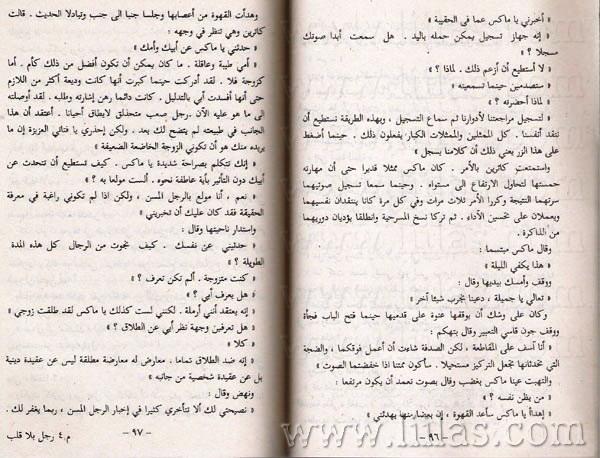 « أخبرني يا ماكس عما في الحقيبة »
« إنه جهاز تسجيل يمكن حمله باليد . هل سمعت أبدا صوتك
مسجلا ؟ »
« لا أستطيع أن أزعم ذلك . لماذا ؟ »
« ستصدمين حينما تسمعينه »
« لماذا أحضرته ؟ »
« لتسجيل مراجعتنا لأدوارنا ثم سماع التسجيل ، وبهذه الطريقة نستطيع أن
ننقد أنفسنا . كل الممثلين والممثلات الكبار يفعلون ذلك . حينما أضغط
على هذا الزر يعني ذلك أن كلامنا يسجل »
واستمتعت كاثرين بالأمر . كان ماكس ممثلا قديرا حتى أن مهارته
حمستها لتحاول الارتفاع الى مستواه . وحينما سمعا تسجيل صوتيهما
سرتهما النتيجة وكررا الأمر ثلاث مرات وفي كل مرة كانا ينتقدان نفسيهما
ويعملان على تحسين الأداء . ثم تركا نسخ المسرحية وانطلقا يؤديان دوريهما
من الذاكرة .
وقال ماكس مبتسما :
« هذا يكفي الليلة »
ووقف وأمسك بيديها وقال :
« تعالي يا جميلة ، دعينا نجرب شيئا آخر »
وكان على وشك أن يوقفها عنوة على قدميها حينما فتح الباب فجأة
ووقف جون قاسي التعبير وقال بتهكم :
« أنا آسف على المقاطعة ، لكن الصدفة شاءت أن أعمل فوقكما ، والضجة
التي تحدثانها تجعل التركيز مستحيلا . سأكون ممتنا اذا خفضتما الصوت »
والتهبت عينا ماكس بغضب وقال بصوت تعمد أن يكون مرتفعا :
« من يظن نفسه ؟ »
« إهدأ يا ماكس سأعد القهوة ، إن بيضارمنها يهدئني »
- ٩٦ -
وهدأت القهوة من أعصابها وجلسا جنبا الى جنب وتبادلا الحديث . قالت
كاثرين وهي تنظر في وجهه :
« حدثني يا ماكس عن أبيك وأمك »
« أمي طيبة وعاقلة . ما كان يمكن أن تكون أفضل من ذلك كأم . أما
كزوجة فلا . لقد أدركت حينما كبرت أنها كانت وديعة أكثر من اللازم
حتى أنها أفسدت أبي بالتدليل . كانت دائما رهن إشارته وطلبه . لقد أوصلته
الى ما هو عليه الآن .رجل صعب متحذلق لايطاق أحيانا . أعتقد أن هذا
الجانب في طبيعته لم يتضح لك بعد . ولكن إحذري يا فتاتي العزيزة إن ما
يريده منك هو أن تكوني الزوجة الخاضعة الضعيفة »
« إنك تتكلم بصراحة شديدة يا ماكس . كيف تستطيع أن تتحدث عن
أبيك دون التأثير بأية عاطفة نحوه . ألست مولعا به ؟ »
« نعم ، أنا مولع بالرجل المسن ، ولكن اذا لم تكوني راغبة في معرفة
الحقيقة فقد كان عليك أن تخبريني »
واستدار ناحيتها وقال :
« حدثيني عن نفسك . كيف نجوت من الرجال كل هذه المدة
الطويلة ؟ »
« كنت متزوجة . ألم تكن تعرف ؟ »
« هل يعرف أبي ؟ »
« إنه يعتقد أنني أرملة . لكنني لست كذلك يا ماكس لقد طلقت زوجي »
« هل تعرفين وجهة نظر أبي عن الطلاق ؟ »
« كلا »
« إنه ضد الطلاق تماما . معارض له معارضة مطلقة ليس عن عقيدة دينية
بل عن عقيدة شخصية من جانبه »
ونهض وقال :
« نصيحتي لك ألا تتأخري كثيرا في إخبار الرجل المسن ، ربما يغفر لك .
- ٩٧ -
م.٤ رجل بلا قلب
www.liilas.com